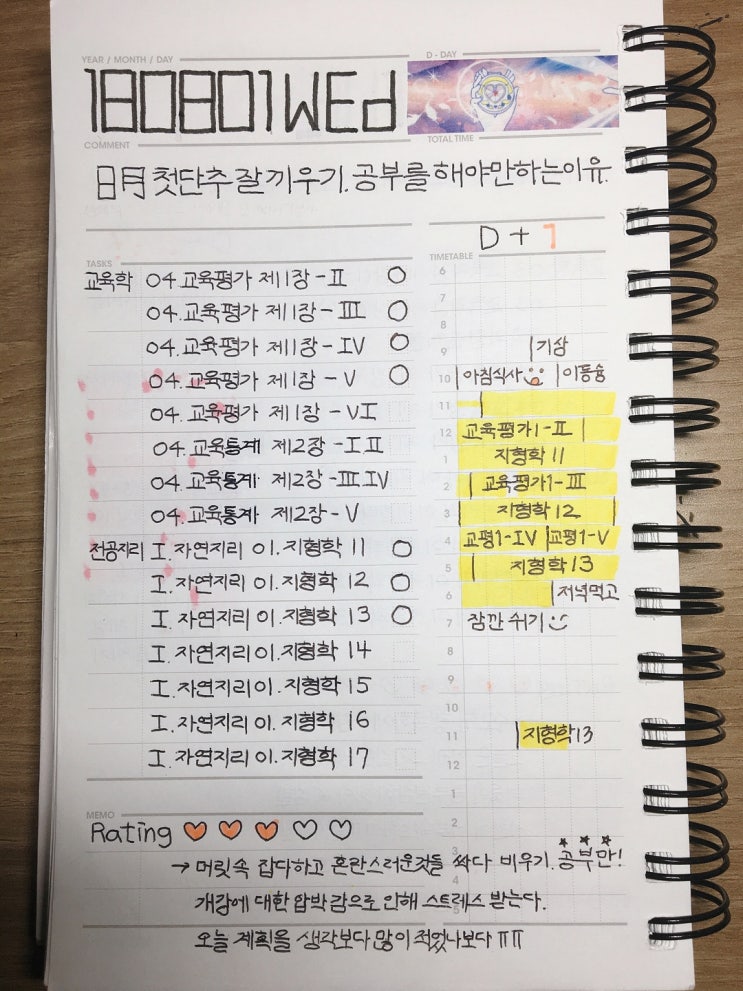 YEAR / MONTH / DAY
D - DAY
180801 WEd
COMMENT
TOTAL TIME
日月 첫단추 잘 끼우기. 공부를 해야만하는이유.
D + 1
TASKS
교육학 04.교육평가 제1장 - II ○
04.교육평가 제1장 - III ○
04.교육평가 제1장 - IV ○
04.교육평가 제1장 - V ○
04.교육평가 제1장 - VI
04.교육통계 제2장 - I II
04.교육통계 제2장 - III IV
04.교육통계 제2장 - V
전공지리 I.자연지리 01.지형학 11 ○
I.자연지리 01.지형학 12 ○
I.자연지리 01.지형학 13 ○
I.자연지리 01.지형학 14
I.자연지리 01.지형학 15
I.자연지리 01.지형학 16
I.자연지리 01.지형학 17
TIMETABLE
6
7
8
9 기상
10 아침식사 이동슝
11
12 교육평가1-II
1 지형학 11
2 교육평가1-III
3 지형학 12
4 교평1-IV 교평1-V
5 지형학 13
6 저녁먹고
7 잠깐 쉬기
8
9
10
11 지형학13
12
1
2
3
4
5
MEMO
Rating ♥♥♥♡♡
→ 머릿속 잡다하고 혼란스러운것들 싹다 비우기. 공부만!
개강에 대한 압박감으로 인해 스트레스 받는다.
오늘 계획을 생각보다 많이 적었나보다 ㅠㅠ